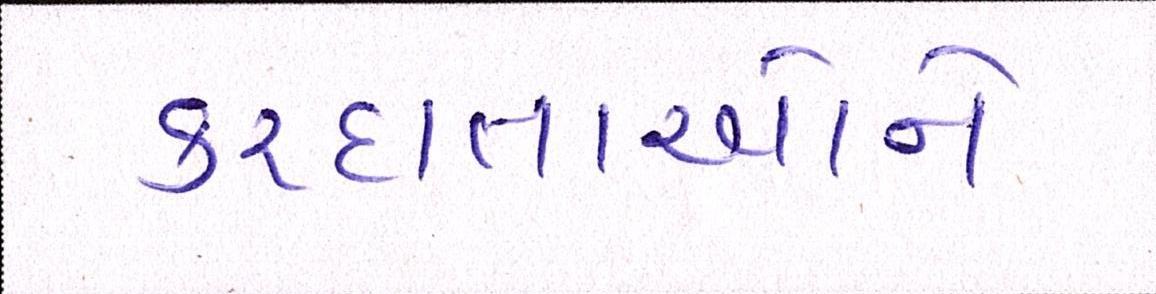 કરદાતાઓને